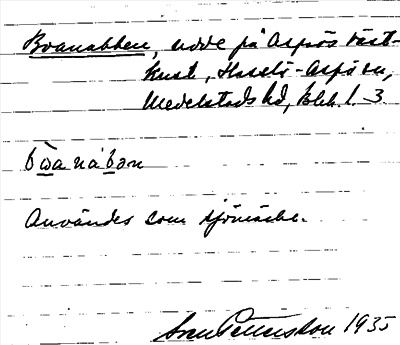 Boanabben, udde på Aspös väst-
kust, Hasslö-Aspö sn,
Medelstads hd, blek. l. 3.
Användes som sjömärke.
Sven Pettersson 1935